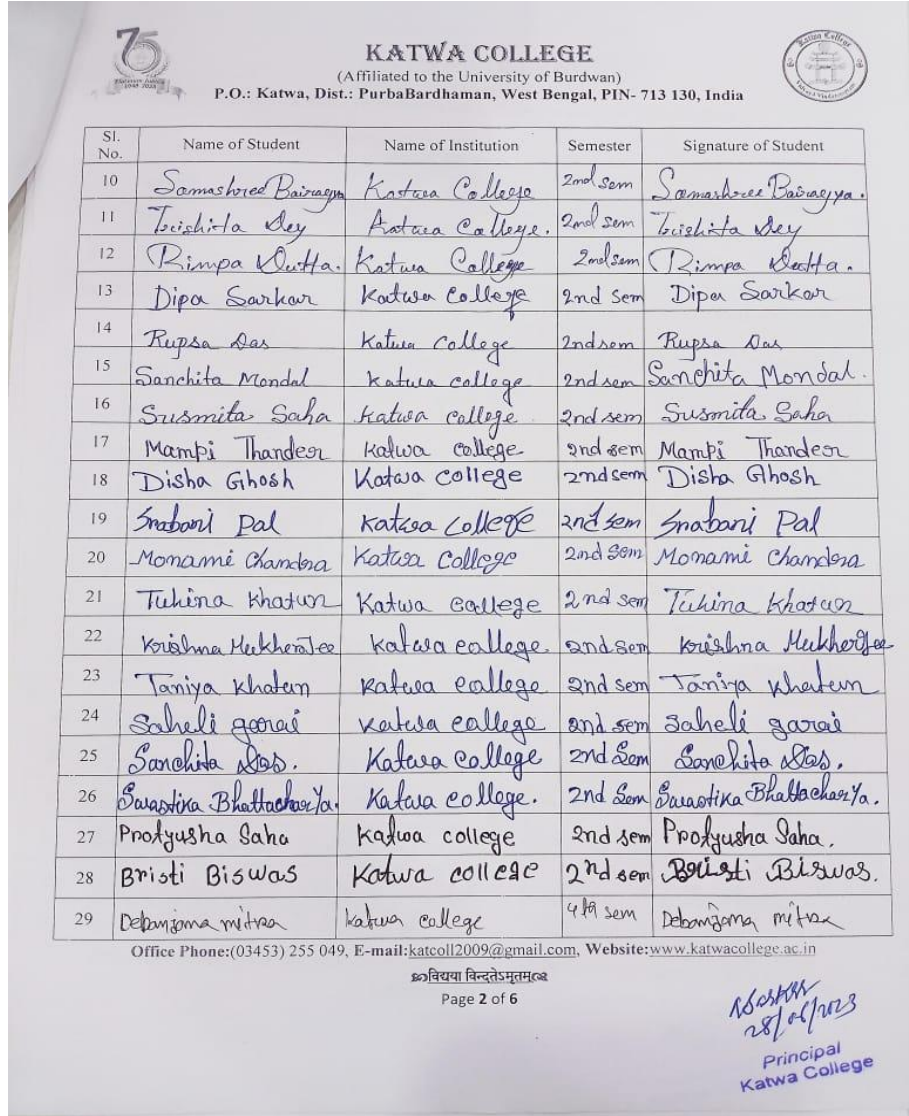 75
KATWA COLLEGE
Katwa College
(Affiliated to the University of Burdwan)
P.O.: Katwa, Dist.: PurbaBardhaman, West Bengal, PIN- 713 130, India
Sl. No. Name of Student Name of Institution Semester Signature of Student
10 Somashree Bairagya Katwa College 2nd sem Somashree Bairagya.
11 Trishita Dey Katwa College. 2nd sem Trishita Dey
12 Rimpa Dutta. Katwa College 2nd sem Rimpa Dutta.
13 Dipa Sarkar Katwa College 2nd Sem Dipa Sarkar
14 Rupsa Das Katwa College 2nd sem Rupsa Das
15 Sanchita Mondal Katwa college 2nd sem Sanchita Mondal.
16 Susmita Saha Katwa college 2nd sem Susmita Saha
17 Mampi Thander Katwa college 2nd sem Mampi Thander
18 Disha Ghosh Katwa college 2nd sem Disha Ghosh
19 Srabani Pal Katwa college 2nd sem Srabani Pal
20 Monami Chandra Katwa College 2nd Sem Monami Chandra
21 Tuhina Khatun Katwa College 2nd sem Tuhina Khatun
22 Krishna Mukherjee Katwa college. 2nd Sem Krishna Mukherjee
23 Taniya Khatun Katwa college 2nd sem Taniya Khatun
24 Saheli garai Katwa college 2nd sem Saheli garai
25 Sanchita Das. Katwa college 2nd Sem Sanchita Das.
26 Swastika Bhattacharya. Katwa college. 2nd Sem Swastika Bhattacharya.
27 Protyusha Saha Katwa college 2nd sem Protyusha Saha.
28 Bristi Biswas Katwa college 2nd sem Bristi Biswas.
29 Debanjana mitra Katwa college 4th sem Debanjana mitra
Office Phone:(03453) 255 049, E-mail:katcoll2009@gmail.com, Website:www.katwacollege.ac.in
विद्यया विन्दतेऽमृतम्
Page 2 of 6
28/06/2023
Principal
Katwa College